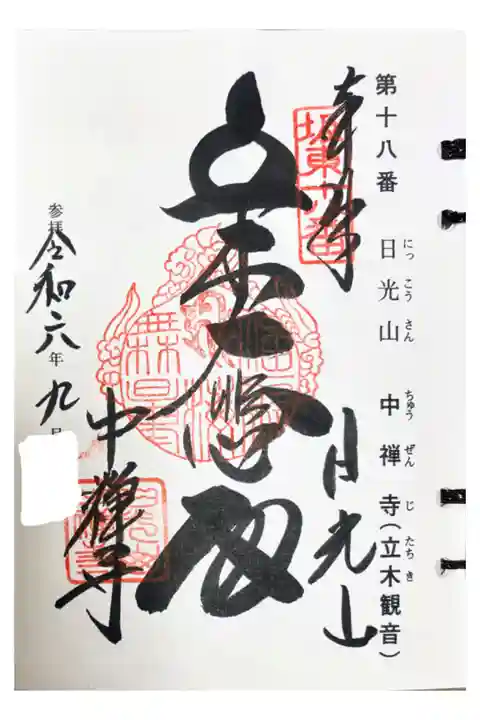 第十八番 日光山 中禅寺(立木観音)
にっこうさん ちゅうぜんじ たちき
奉拝
坂東十八番
日光山
立木大悲殿
中禅寺
参拝 令和六年九月